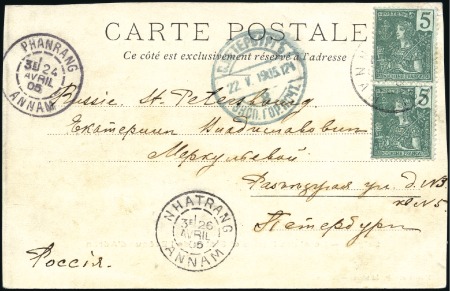 CARTE POSTALE
Ce côté est exclusivement réservé à l'adresse
PHANRANG
24
AVRIL
05
ANNAM
22. V. 1905. 12
5
5
Russie St. Petersbourg
Екатерине Владиславовне
Меркульевой
ул. д. №3
кв №5.
Петербург
NHATRANG
26
AVRIL
05
ANNAM
Россія.